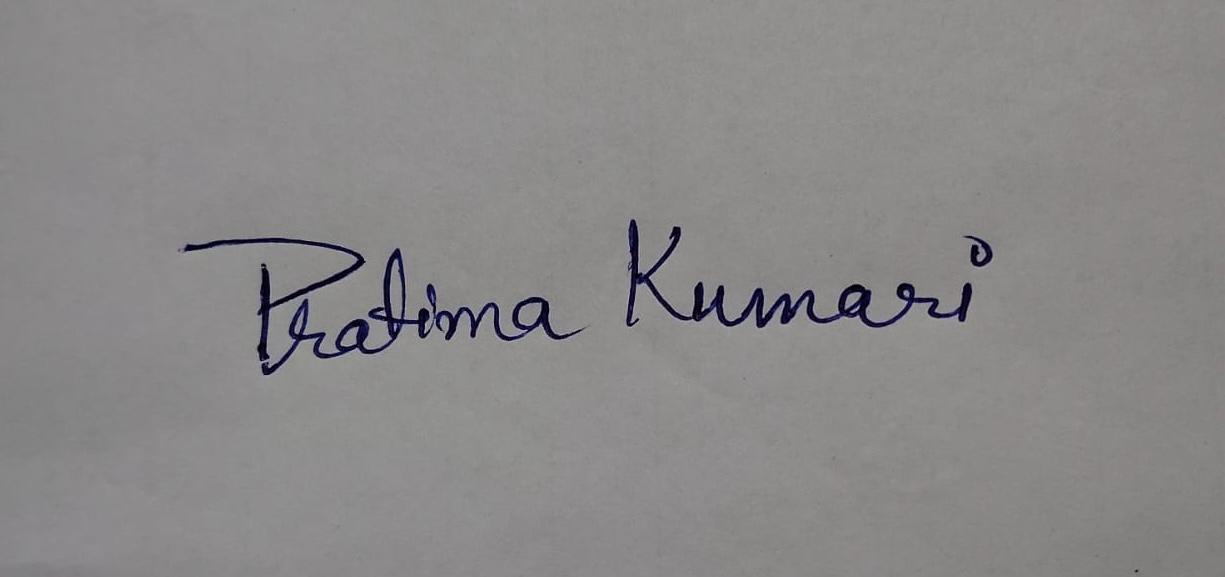 Pratima Kumari